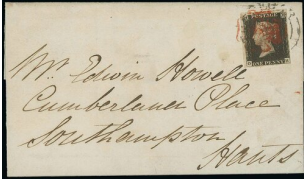 POSTAGE
ONE PENNY
Mr. Edwin Howell
Cumberland Place
Southampton
Hants